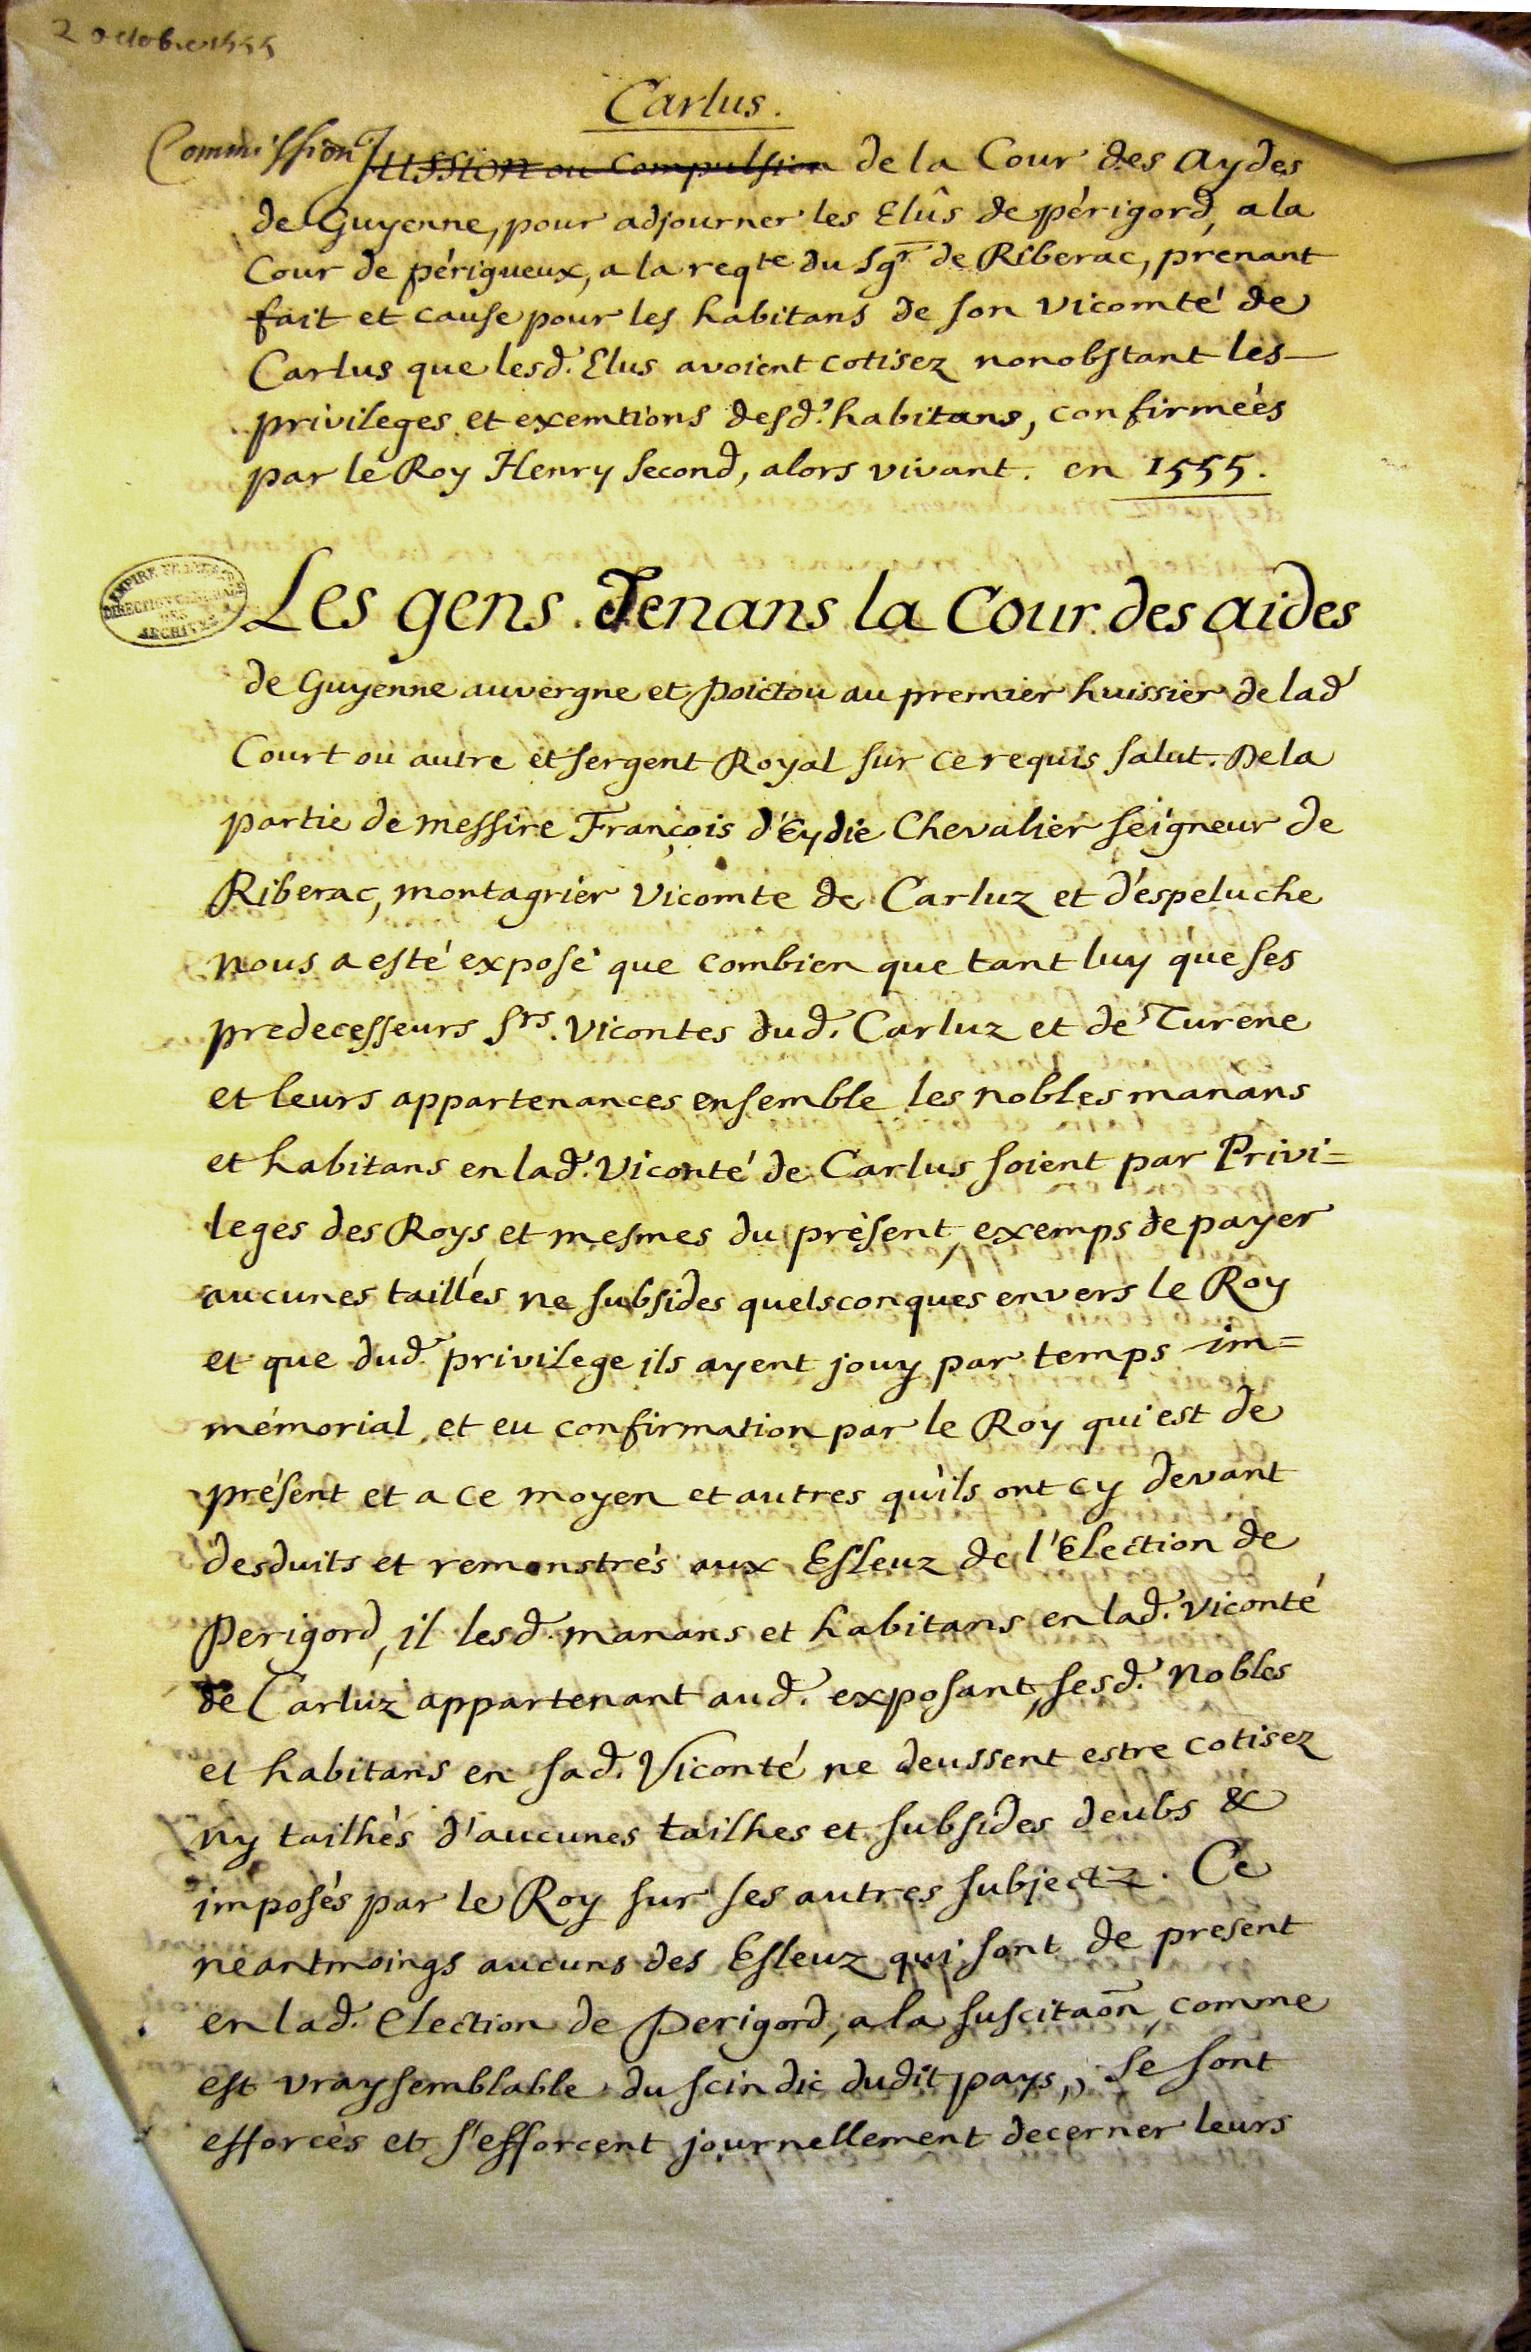 2 octobre 1555
Carlus.
Commission Jussion ou Compulsion de la Cour des aydes
de Guyenne, pour adjourner les Elûs de périgord, a la
Cour de périgueux, a la reqte du Sgr de Riberac, prenant
fait et cause pour les habitans de son Vicomté de
Carlus que lesd. Elus avoient cotisez nonobstant les
privileges et exemtions desd. habitans, confirméés
par le Roy Henry Second, alors vivant. en 1555.
EMPIRE FRANÇAIS
DIRECTION GENERALE
DES
ARCHIVES
Les gens Tenans la Cour des aides
de Guyenne auvergne et poictou au premier huissier de lad
Court ou autre et sergent Royal sur ce requis salut. De la
partie de messire François d'Eydie Chevalier seigneur de
Riberac, montagrier Vicomte de Carluz et d'espeluche
nous a esté exposé que combien que tant luy que ses
predecesseurs Srs. Vicontes dud. Carluz et de Turene
et leurs appartenances ensemble les nobles manans
et habitans en lad. Viconté de Carlus soient par Privi=
leges des Roys, et mesmes du présent, exemps de payer
aucunes taillés ne subsides quelsconques envers le Roy
et que dud. privilege ils ayent jouy par temps im=
mémorial, et eu confirmation par le Roy qui est de
présent et a ce moyen et autres qu'ils ont cy devant
desduits et remonstrés aux Esleuz de l'Election de
Perigord, il lesd. manans et habitans en lad. viconté
de Carluz appartenant aud. exposant, sesd. Nobles
et habitans en sad. Viconté ne deussent estre cotisez
ny tailhés d'aucunes tailhes et subsides deubs &
imposés par le Roy sur ses autres subjectz. Ce
neantmoings aucuns des Esleuz qui sont de present
en lad. Election de Perigord, a la suscitaõn, comme
est vraysemblable du scindic dudit pays, se sont
efforcés et s'efforcent journellement decerner leurs